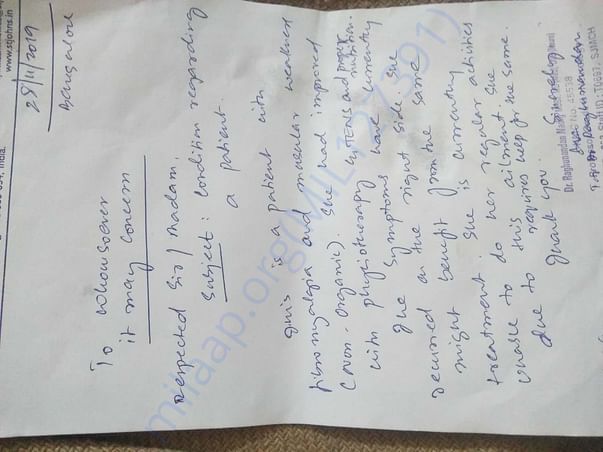 www.stjohns.in
India.
28/11/2019
Bangalore
To whomsoever
it may concern
Respected Sir/Madam,
Subject: Condition regarding
a patient.
This is a patient with
fibromyalgia and muscular weakness
(Non-organic). She had improved
with physiotherapy by TENS and proper nutrition.
The symptoms have currently
recurred on the right side. She
might benefit from the same
treatment. She is currently
unable to do her regular activities
due to this ailment. She
requires help for the same.
Thank you.
Dr. Raghunandan
milaap.org(MIL127391)